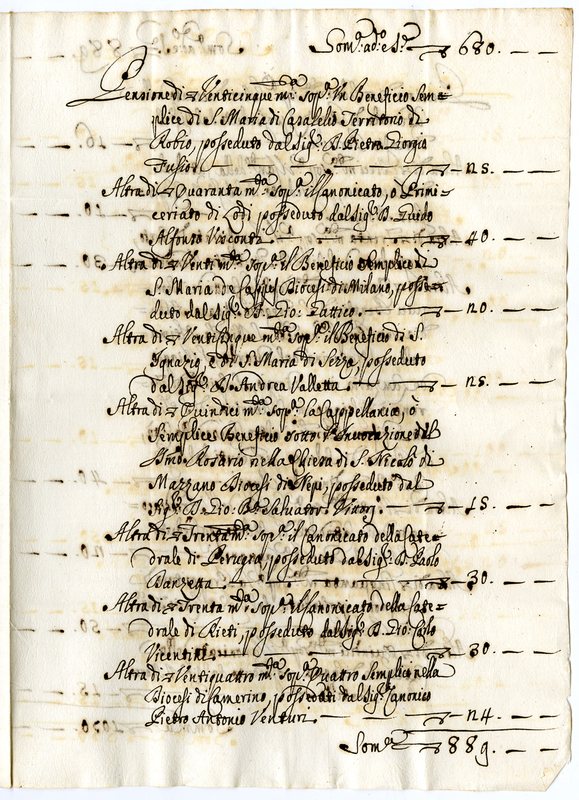 Som.ª ad.º e S.ª ▽ 680. — —
Pensione di ▽ Venticinque m.ta Sop.ª Vn Beneficio Sem=
plice di S. Maria di Casalelio Territorio di
Robio, posseduto dal Sig.r D. Pietro Giorgio
Fusio — ▽ — 25. — —
Altra di ▽ Quaranta m.da Sop.ª il Canonicato, o Primi=
ceriato di Lodi posseduto dal Sig.r D. Guido
Alfonso Visconti — ▽ — 40. — —
Altra di ▽ Venti m.da Sop.ª il Beneficio Semplice di
S. Maria de Diocesi di Milano, posse=
duto dal Sig.r D. Gio: Gattico. — ▽ — 20. — —
Altra di ▽ Venticinque m.da Sop.ª il Beneficio di S.
Ignazio, e di S. Maria di Sezza, posseduto
dal Sig.r D. Andrea Valletta — ▽ — 25. — —
Altra di ▽ Quindici m.da Sop.ª la Cappellania, ò
Semplice Beneficio sotto l'Invocazione del
Smo Rosario nella Chiesa di S. Nicolò di
Mazzano Diocesi di Nepi, posseduto dal
Sig.r D. Gio: Ba Salvatore — ▽ — 15. — —
Altra di ▽ Trenta m.da Sop.ª il Canonicato della Cate=
drale di Perugia posseduto dal Sig.r D. Paolo
Danzetta — ▽ — 30. — —
Altra di ▽ Trenta m.da Sop.ª il Canonicato della Cate=
drale di Rieti, posseduto dal Sig.r D. Gio: Carlo
Vicentini — ▽ — 30. — —
Altra di ▽ Ventiquattro m.da Sop.ª Quattro Semplici nella
Diocesi di Camerino, posseduti dal Sig.r Canonico
Pietro Antonio Venturi — ▽ — 24. — —
Som.ª ▽ 889. — —